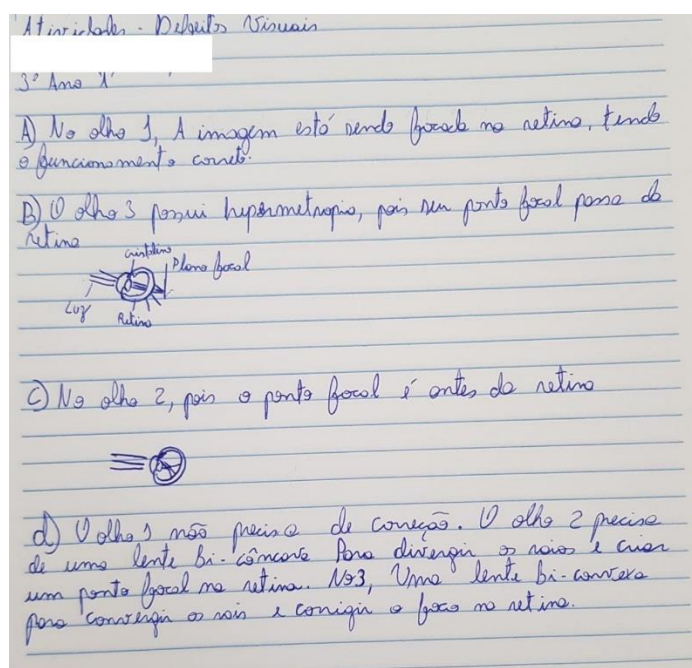 Atividades - Defeitos Visuais
3º Ano
A) No olho 1, A imagem está sendo focada na retina, tendo
o funcionamento correto.
B) O olho 3 possui hipermetropia, pois seu ponto focal passa da
retina
Cristalino
Plano focal
Luz
Retina
C) No olho 2, pois o ponto focal é antes da retina
d) O olho 1 não precisa de correção. O olho 2 precisa
de uma lente bi-côncava Para divergir os raios e criar
um ponto focal na retina. No 3, Uma lente bi-convexa
para convergir os rais e corrigir o foco na retina.